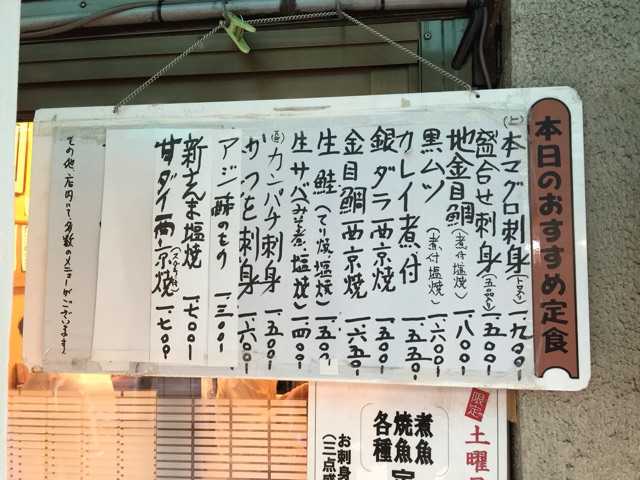 本日のおすすめ定食
(上)本マグロ刺身(トロ入り)一.九〇〇
盛合せ刺身(五点盛り)一.五〇〇
地金目鯛(煮付塩焼)一.八〇〇
黒ムツ(煮付塩焼)一.六〇〇
カレイ煮付 一.五五〇
銀ダラ西京焼 一.五〇〇
金目鯛西京焼 一.六五〇
生鮭(てり焼塩焼)一.五〇〇
生サバ(みそ煮、塩焼)一.四〇〇
カンパチ刺身 一.五〇〇
かつを刺身 一.六〇〇
アジ酢のもの 一.三〇〇
新さんま塩焼 一.七〇〇
甘ダイ西京焼 一.七〇〇
その他、店内にて多数のメニューがございます。
限定
土曜
煮魚
焼魚
各種
定
お刺身
(三点盛